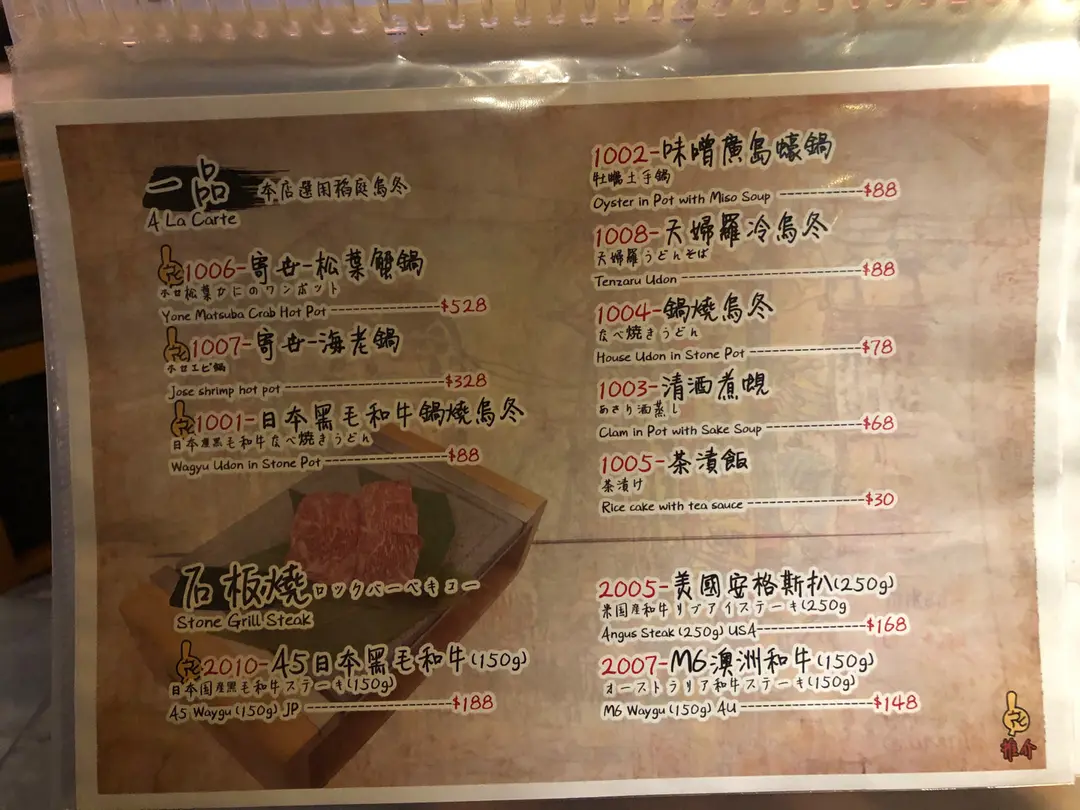 一品 本店選用稻庭烏冬
A La Carte
1006-寄世-松葉蟹鍋
ホロ松葉かにのワンポット
Yone Matsuba Crab Hot Pot ---------------------$528
1007-寄世-海老鍋
ホロエビ鍋
Jose shrimp hot pot ------------------------------$328
1001-日本黑毛和牛鍋燒烏冬
日本産黒毛和牛なべ焼きうどん
Wagyu Udon in Stone Pot -----------------------$88
石板燒 ロックバーベキュー
Stone Grill Steak
2010-A5日本黑毛和牛(150g)
日本国産黒毛和牛ステーキ(150g)
A5 Waygu (150g) JP ---------------------------$188
1002-味噌廣島蠔鍋
牡蠣土手鍋
Oyster in Pot with Miso Soup ---------------$88
1008-天婦羅冷烏冬
天婦羅うどんそば
Tenzaru Udon ----------------------------------$88
1004-鍋燒烏冬
なべ焼きうどん
House Udon in Stone Pot ---------------------$78
1003-清酒煮蜆
あさり酒蒸し
Clam in Pot with Sake Soup ------------------$68
1005-茶漬飯
茶漬け
Rice cake with tea sauce ---------------------$30
2005-美國安格斯扒(250g)
米国産和牛リブアイステーキ(250g
Angus Steak (250g) USA--------------------$168
2007-M6澳洲和牛(150g)
オーストラリア和牛ステーキ(150g)
M6 Waygu (150g) AU ------------------------$148
推介